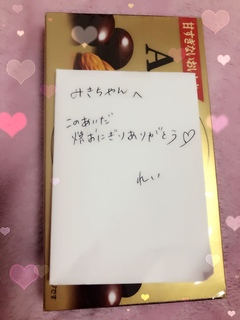 甘すぎないおい
A
みきちゃんへ
このあいだ
焼おにぎりありがとう♡
れい
です